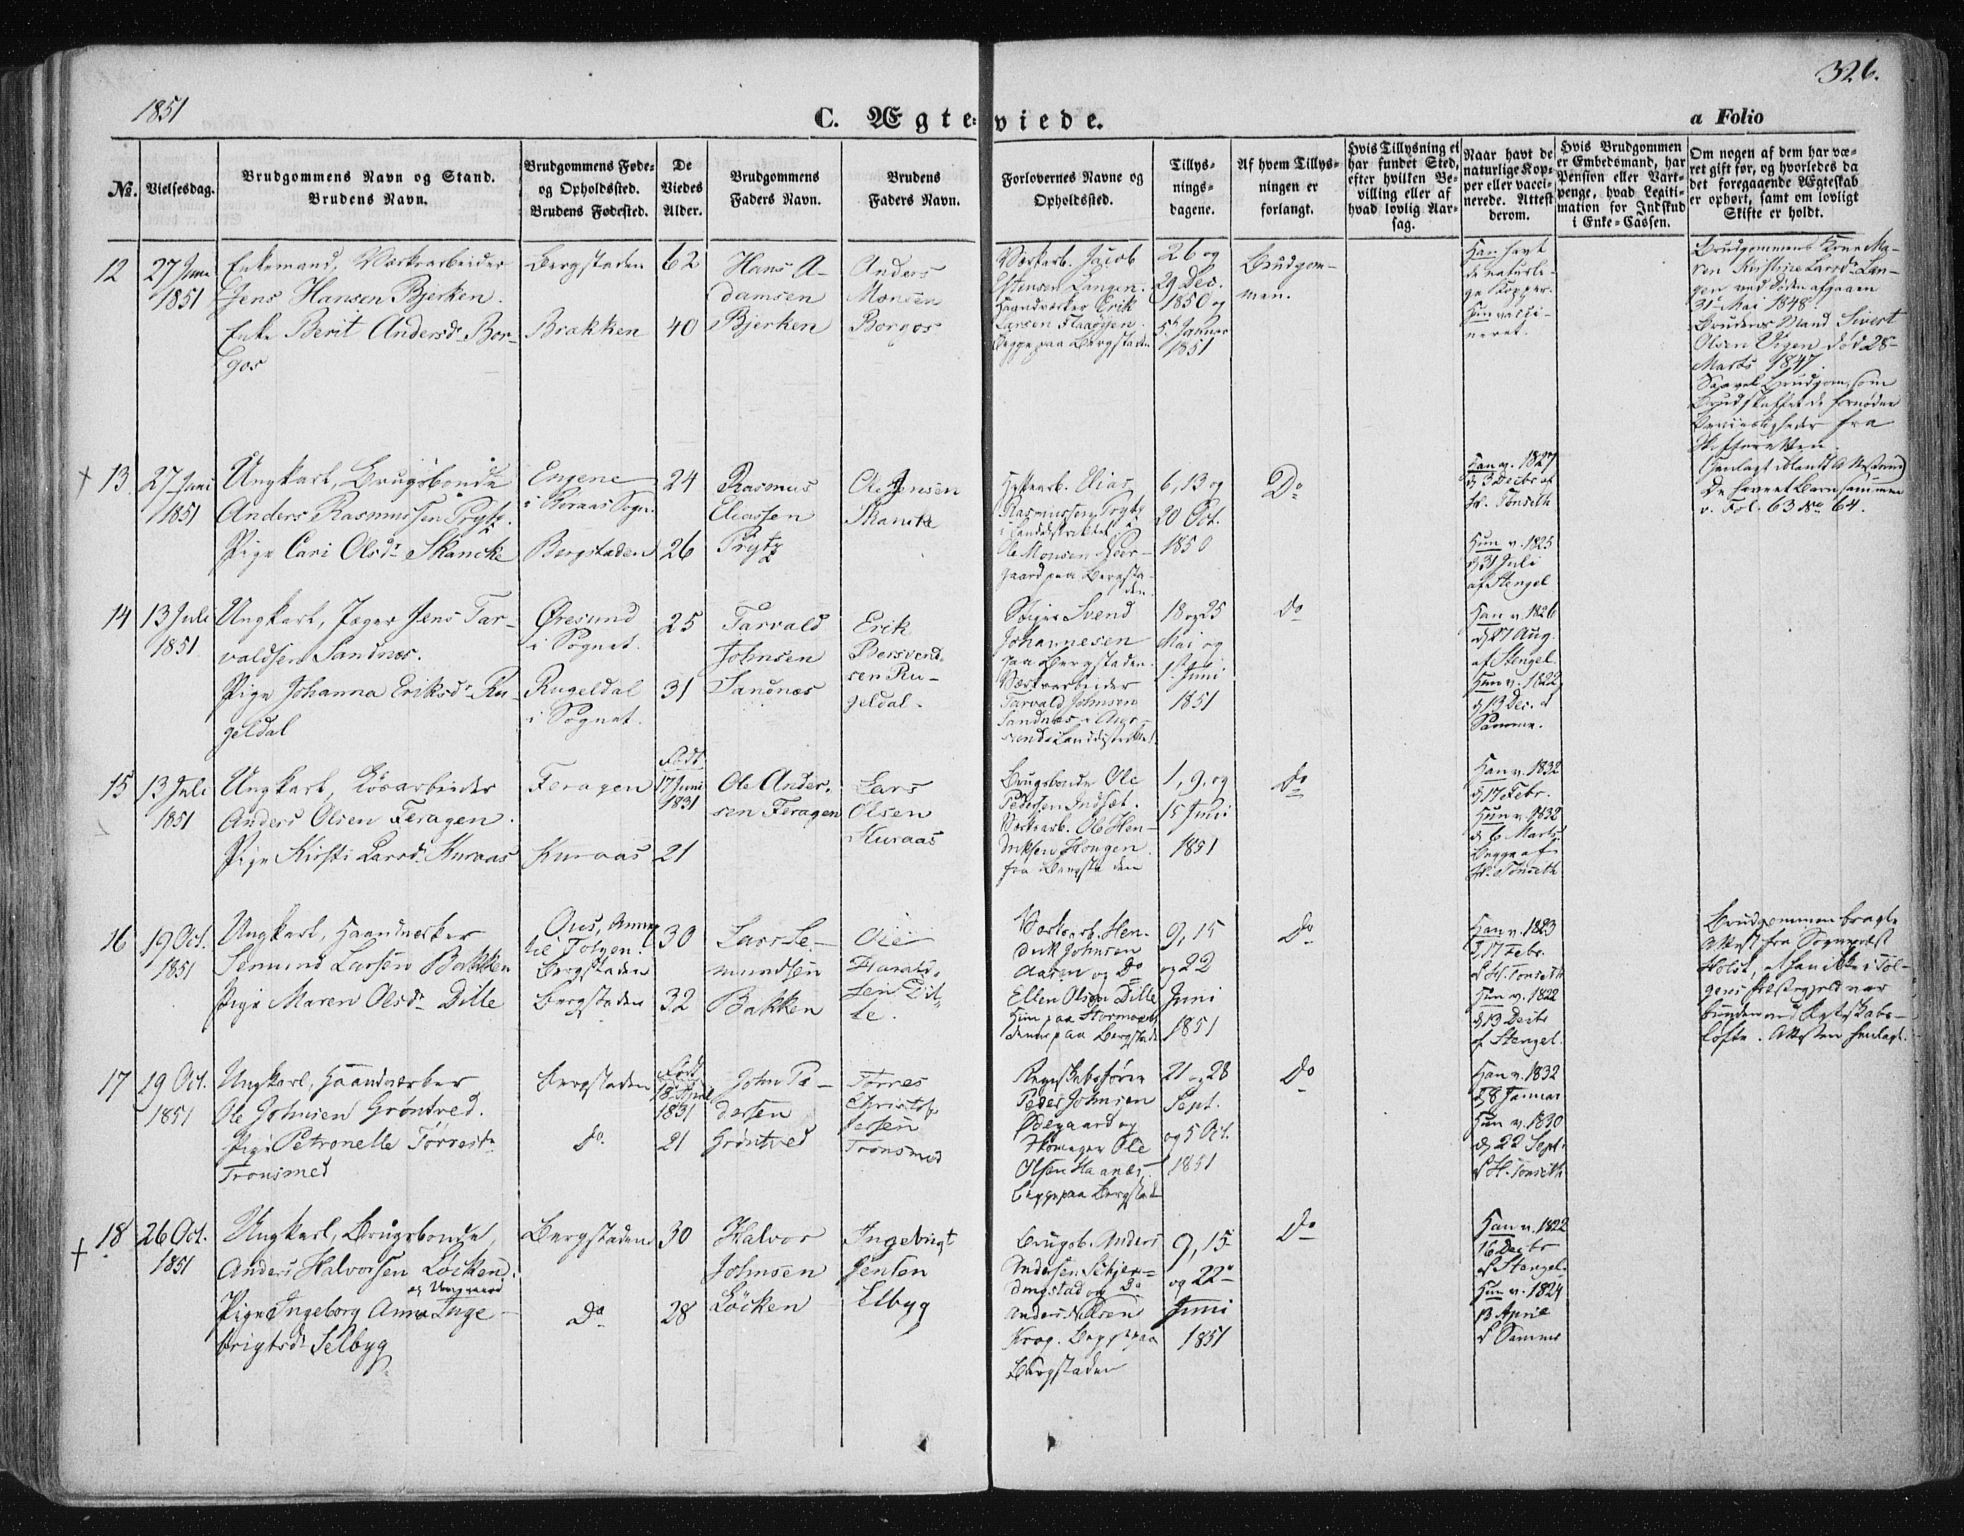 1851
326.
C. Ægte-
viede.
a Folio
No.
Vielsesdag.
Brudgommens Navn og Stand.
Brudens Navn.
Brudgommens Føde-
og Opholdssted.
Brudens Fødested.
De
Viedes
Alder.
Brudgommens
Faders Navn.
Brudens
Faders Navn.
Forlovernes Navne og
Opholdssted.
Tillys-
nings-
dagene.
Af hvem Tillys-
ningen er
forlangt.
Hvis Tillysning ei
har fundet Sted,
efter hvilken Be-
villing eller af
hvad lovlig Aar-
sag.
Naar havt de
naturlige Kop-
per eller vacci-
nerede. Attest
derom.
Hvis Brudgommen
er Embedsmand, har
Pension eller Vart-
penge, hvad Legiti-
mation for Indskud
i Enke-Cassen.
Om nogen af dem har væ-
ret gift før, og hvorledes da
det foregaaende Ægteskab
er ophørt, samt om lovligt
Skifte er holdt.
12
27 Juni
1851
Enkemand, Værkarbeider
Jens Hansen Bjerken.
Enke Berit Andersd. Bor-
gos
Bergstaden
Brækken
62
40
Hans A-
damsen
Bjerken
Anders
Monsen
Borgos
Værkarb. Jacob
Estensen Langen.
Haandverker Erik
Larsen Flaaøjen.
Begge paa Bergstaden
26 og
29 Dec.
1850 og
5 Januar
1851
Brudgom-
men.
Han havt
de naturli-
ge Kopper.
Hun vacci-
neret.
Brudgommens Kone Ma-
ren Kristine Larsd. Lan-
gen ved Døden afgaaen
31 Mai 1848.
Brudens Mand Sivert
Olsen Vigen død 28
Marts 1847.
Saavel Brudgom som
Brud skaffet de fornødne
Beviisligheder fra
Skifteretten.
13
27 Juni
1851
Ungkarl, Brugsbonde
Anders Rasmussen Prytz.
Pige Cari Olsdr Skancke
Engene
i Røraas Sogn.
Bergstaden
24
26
Rasmus
Eliassen
Prytz
Ole Jensen
Skancke
Hytteab. Elias
Rasmussen Prytz
i Landdistriktet
Ole Monsen
gaard paa Bergsta-
den.
6, 13 og
20 Oct.
1850
Do
Han v. 1827
d 3 Decbr af
H. Tonseth
Hun v. 1825
d 31 Juli
af Stengel
(Henlagt iblandt Attesterne)
De havret Barn sammen
v. Fol. 63 No 64.
14
13 Juli
1851
Ungkarl, Jæger Jens Tar-
valdsen Sandnæs.
Pige Johanna Eriksd. Ru-
geldal
Øresund
i Sognet.
Rugeldal
i Sognet.
25
31
Tarvald
Johnsen
Sandnæs
Erik
Bersvend-
sen Ru-
geldal.
Stiger Svend
Johannesen
paa Bergstaden.
Værkarbeider
Tarvald Johnsen
Sandnæs i
Landdistriktet.
18 og 25
Mai og
1 Juni
1851
Do
Han v. 1826
d 27 Aug.
af Stengel.
Hun v. 1822
d 13 Dec. d
Samme.
15
13 Juli
1851
Ungkarl, Kørarbeider
Anders Olsen Feragen.
Pige Kirsti Larsd. Kuraas
Feragen
Kuraas
Født
17 Juni
1831
21
Ole Ander-
sen Feragen
Lars
Olsen
Kuraas
Brugsbonde Ole
Pedersen Indset.
Værkarb. Ole Hen-
driksen Haugen.
fra Bergstaden
1, 9. og
15 Juni
1851
Do
Han v. 1832
d 17 Febr.
Hun v. 1832
d 6 Marts
Begge af
H. Tonseth
16
19 Oct.
1851
Ungkarl, Haandværker
Semund Larsen Bakken
Pige Maren Olsdr Dille
Tolgen.
Bergstaden
Bergstaden
30
32
Lars Se-
mundsen
Bakken
Ole
Haralt-
sen Dil-
le.
Værkarb. Hen-
drik Johnsen
Aasen og Do
Ellen Olsen Dille
paa Bergstaden
9, 15
og 22
Juni
1851
Do
Han v. 1823
d 17 Febr.
af H. Tonseth
Hun v. 1822
d 13 Decbr
af Stengel.
Brudgommen bragte
Attest fra Sognepræst
Holst, at han ikke i Tol-
gens Præstegjeld var
bunden ved Ægteskabs-
løfte. Attesten henlagt.
17
19 Oct.
1851
Ungkarl, Haandværker
Ole Johnsen Grøntved.
Pige Petronelle Tørresdr
Tronsmed
Bergstaden
Do
Født
18 April
1831
21
John Pe-
dersen
Grøntved
Tørres
Christof-
fersen
Tronsmed
Regnskabsfører
Peder Johnsen
Ødegaard og
Skomager Ole
Olsen Haanæs.
Begge paa Bergstad
21 og 28
Sept.
og 5 Oct.
1851
Do
Han v. 1832
d 8 Januar
Hun v. 1830
d 22 Sept.
af H. Tonseth
18
26 Oct.
1851
Ungkarl, Brugsbonde,
Anders Halvorsen Løcken.
og Ungmand
Pige Ingeborg Anna Inge-
brigtsdr Selbyg
Bergstaden
Do
30
28
Halvor
Johnsen
Løcken
Ingebrigt
Jensen
Elbyg
Brugsb. Anders
Andersen Schjer-
dingstad og Do
Anders Nilsen
Krog. Begge paa
Bergstaden
9, 15
og 22
Juni
1851
Do
Han v. 1822
16 Decbr
af Stengel.
Hun v. 1824
13 April
af Samme